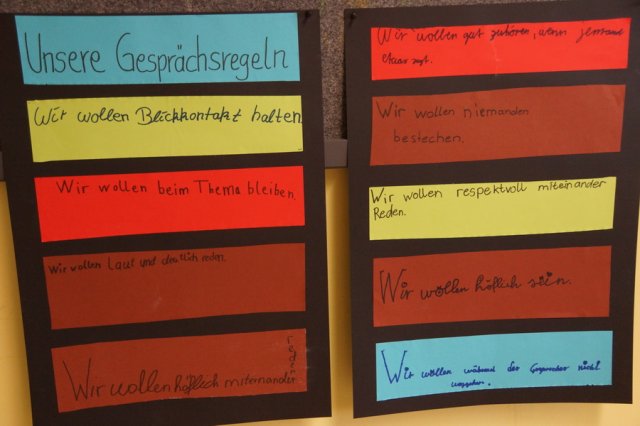 Unsere Gesprächsregeln
Wir wollen Blickkontakt halten
Wir wollen beim Thema bleiben.
Wir wollen Laut und deutlich reden.
Wir wollen höflich miteinander
reden
Wir wollen gut zuhören, wenn jemand
etwas sagt.
Wir wollen niemanden
bestechen.
Wir wollen respektvoll miteinander
Reden.
Wir wollen höflich sein.
Wir wollen während der Gespräche nicht